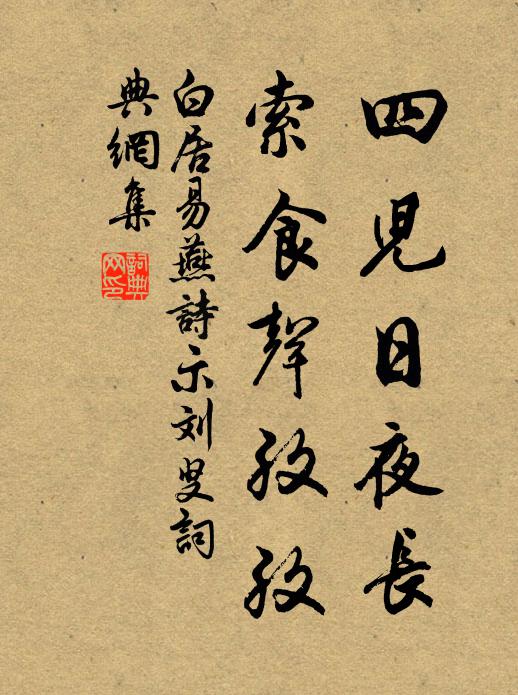 四児日夜長
索食聲孜孜
白居易燕詩示刘叟詞
典網集
詞典網印